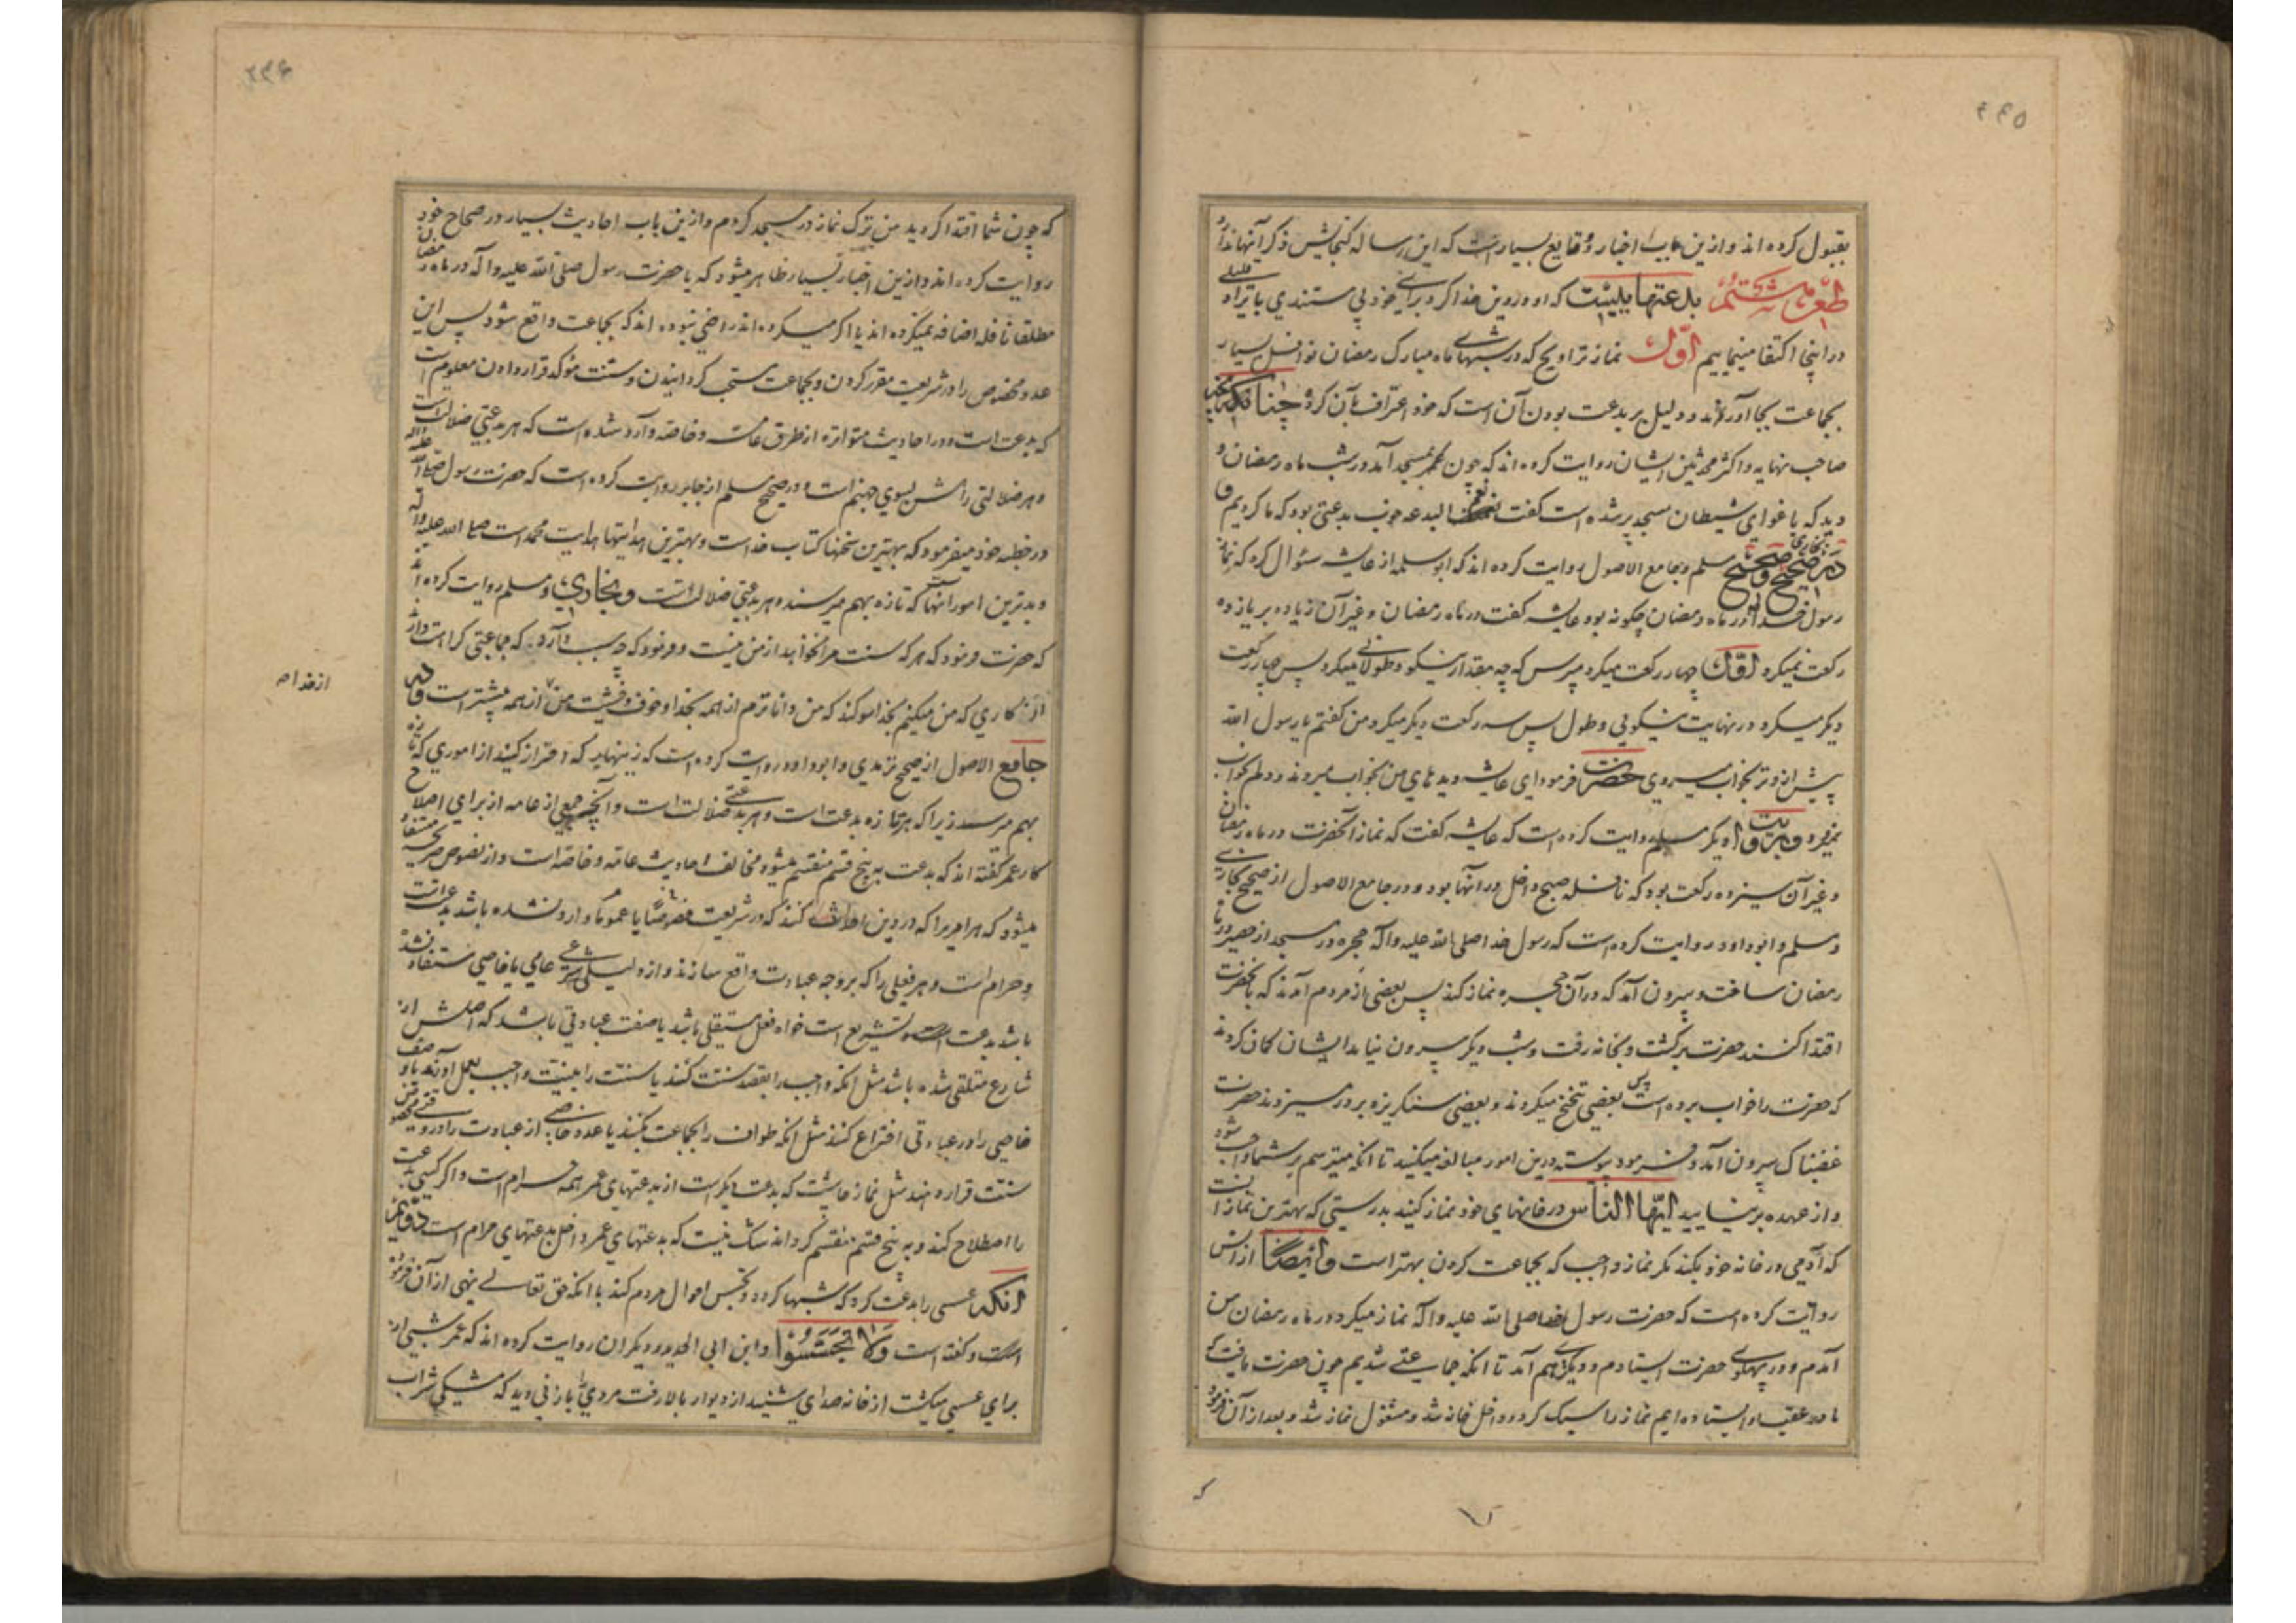 ۴۴۵
بقبول کرده‌اند و ازین باب اخبار و وقایع بسیار است که این رساله کنجایش ذکر آنها ندارد
طعن ششم بدعتهاییست که او در دین خدا کرد برای خود بی مستندی با تراو قلیلی
در اینجا اکتفا مینماییم اوّل نماز تراویح که در شبهای ماه مبارک رمضان نوافل بسیار
بجماعت بجا آورند و دلیل بر بدعت بودن آن است که خود اعتراف بآن کرد چنانکه
صاحب نهایه و اکثر محدثین ایشان روایت کرده‌اند که چون عمر بمسجد آمد در شب ماه رمضان و
دید که باغوای شیطان مسجد پر شده است کفت نعمت البدعه خوب بدعتی بود که ما کردیم و
در صحیح بخاری و صحیح مسلم و جامع الاصول روایت کرده‌اند که ابو سلمه از عایشه سئوال کرد که نماز
رسول خدا در ماه رمضان چکونه بود عایشه کفت در ماه رمضان و غیر آن زیاده بر یازده
رکعت نمیکرد اوّل چهار رکعت میکرد مپرس که چه مقدار نیکو و طولانی میکرد پس چهار رکعت
دیکر میکرد در نهایت نیکویی و طول پس سه رکعت دیکر میکرد من کفتم یا رسول الله
پیش از وتر بخواب میروی حضرت فرمود ای عایشه دیده‌های من بخواب میروند و دلم بخواب
نمیرود و بروایت دیکر مسلم روایت کرده است که عایشه کفت که نماز آنحضرت در ماه رمضان
و غیر آن سیزده رکعت بود که نافله صبح داخل در آنها بود و در جامع الاصول از صحیح بخاری
و مسلم و ابو داود روایت کرده است که رسول خدا صلی الله علیه و آله حجره در مسجد از حصیر در ماه
رمضان ساخت و بیرون آمد که در آن حجره نماز کند پس بعضی از مردم آمدند که بآنحضرت
اقتدا کنند حضرت برکشت و بخانه رفت و شب دیکر بیرون نیامد ایشان کمان کردند
که حضرت را خواب برده است پس بعضی تنحنح میکردند و بعضی سنکریزه بر در میزدند حضرت
غضبناک بیرون آمد و فرمود پیوسته درین امور مبالغه میکنید تا آنکه میترسم بر شما واجب شود
و از عهده بر نیایید ایّها النّاس در خانهای خود نماز کنید بدرستی که بهترین نماز آنست
که آدمی در خانه خود بکند مکر نماز واجب که بجماعت کردن بهتر است و ایضًا از انس
روایت کرده است که حضرت رسول خدا صلی الله علیه و آله نماز میکرد در ماه رمضان من
آمدم و در پهلوی حضرت ایستادم و دیکری هم آمد تا آنکه جماعتی شدیم چون حضرت یافت که
ما در عقب او ایستاده‌ایم نماز را سبک کرد و داخل خانه شد و مشغول نماز شد و بعد از آن فرمود
که
که چون شما اقتدا کردید من ترک نماز در مسجد کردم و ازین باب احادیث بسیار در صحاح خود
روایت کرده‌اند و ازین اخبار بسیار ظاهر میشود که یا حضرت رسول صلی الله علیه و آله در ماه رمضان
مطلقا نافله اضافه نمیکرده‌اند یا اکر میکرده‌اند راضی نبوده‌اند که بجماعت واقع شود پس این
عدد مخصوص را در شریعت مقرر کردن و بجماعت مستحب کردانیدن و سنت مؤکد قرار دادن معلوم است
که بدعت است و در احادیث متواتره از طرق عامّه و خاصّه وارد شده است که هر بدعتی ضلالت است
و هر ضلالتی راهش بسوی جهنم است و در صحیح مسلم از جابر روایت کرده است که حضرت رسول صلی الله علیه و آله
در خطبه خود میفرمود که بهترین سخنها کتاب خداست و بهترین هدایتها هدایت محمد است صلی الله علیه و آله
و بدترین امور آنهاست که تازه بهم میرسند و هر بدعتی ضلالت است و بخاری و مسلم روایت کرده‌اند
که حضرت فرمود که هر که سنت مرا نخواهد از من نیست و فرمود که چه سبب دارد که جماعتی کراهت دارند
از کاری که من میکنم بخدا سوکند که من داناترم از همه بخدا و خوف و خشیت من از همه بیشتر است و در
از خدا صح
جامع الاصول از صحیح ترمدی و ابو داود روایت کرده است که زینهار که احتراز کنید از اموری که تازه
بهم میرسد زیرا که هر تازه بدعت است و هر بدعتی ضلالت است و آنچه جمعی از عامه از برای اصلاح
کار عمر کفته‌اند که بدعت به پنج قسم منقسم میشود مخالف احادیث عامّه و خاصّه است و از نصوص صحیحه مستفاد
میشود که هر امریرا که در دین احداث کنند که در شریعت خصوصًا یا عمومًا وارد نشده باشد بدعت است
و حرام است و هر فعلی را که بر وجه عبادت واقع سازند و از دلیلی شرعی عامی یا خاصی مستفاد نشده
باشد بدعت است و تشریع است خواه فعل مستقلی باشد یا صفت عبادتی باشد که اصلش از
شارع متلقی شده باشد مثل آنکه واجب را بقصد سنّت کنند یا سنّت را بنیت واجب بعمل آورند یا وصف
خاصی را در عبادتی اختراع کنند مثل آنکه طواف را بجماعت بکنند یا عدد خاصی از عبادت را در وقتی مخصوص
سنّت قرار دهند مثل نماز چاشت که بدعت دیکر است از بدعتهای عمر همه حرام است و اکر کسی بدعت
را اصطلاح کند و به پنج قسم منقسم کرداند شک نیست که بدعتهای عمر داخل بدعتهای حرام است دوّیم
آنکه عسسی را بدعت کرد که شبها کردد و تجسس احوال مردم کند با آنکه حق تعالی نهی از آن فرموده
است و کفته است وَلا تَجَسَّسُوا و ابن ابی الحدید و دیکران روایت کرده‌اند که عمر شبی از
برای عسسی میکشت از خانه صدای شنید از دیوار بالا رفت مردی را با زنی دید که مشکی شراب